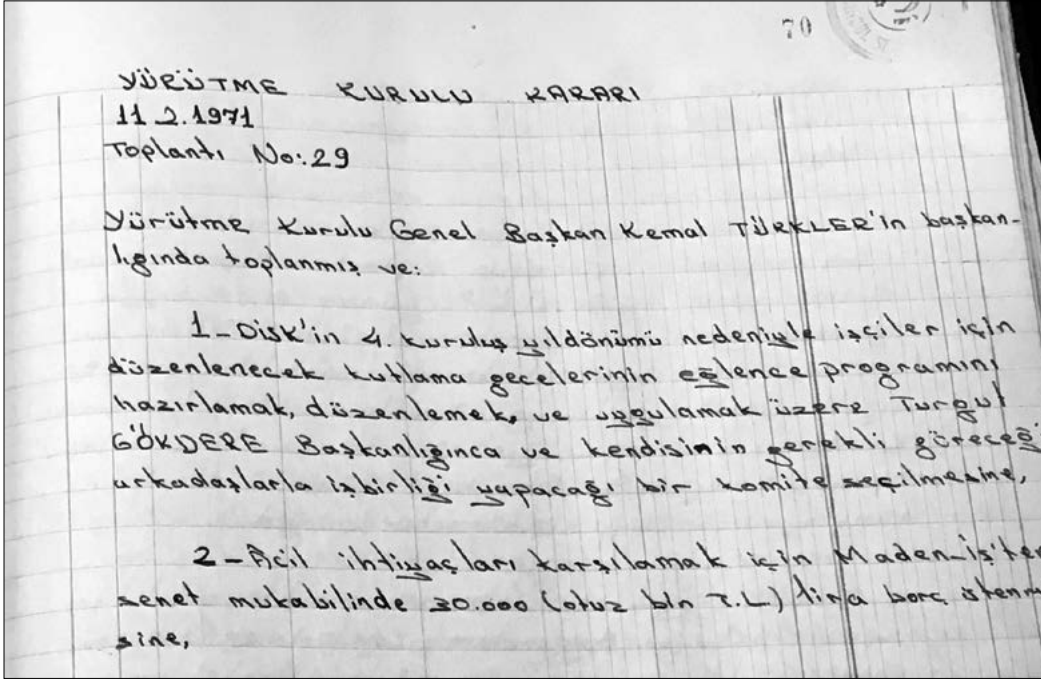 70
YÜRÜTME KURULU KARARI
11.2.1971
Toplantı No:29
Yürütme Kurulu Genel Başkan Kemal TÜRKLER'in başkan-
lığında toplanmış ve:
1-Disk'in 4. kuruluş yıldönümü nedeniyle işçiler için
düzenlenecek kutlama gecelerinin eğlence programını
hazırlamak, düzenlemek, ve uygulamak üzere Turgut
GÖKDERE Başkanlığınca ve kendisinin gerekli göreceği
arkadaşlarla işbirliği yapacağı bir komite seçilmesine,
2-Acil ihtiyaçları karşılamak için Maden-İş'ten
senet mukabilinde 30.000 (otuz bin T.L) lira borç istenm
sine,